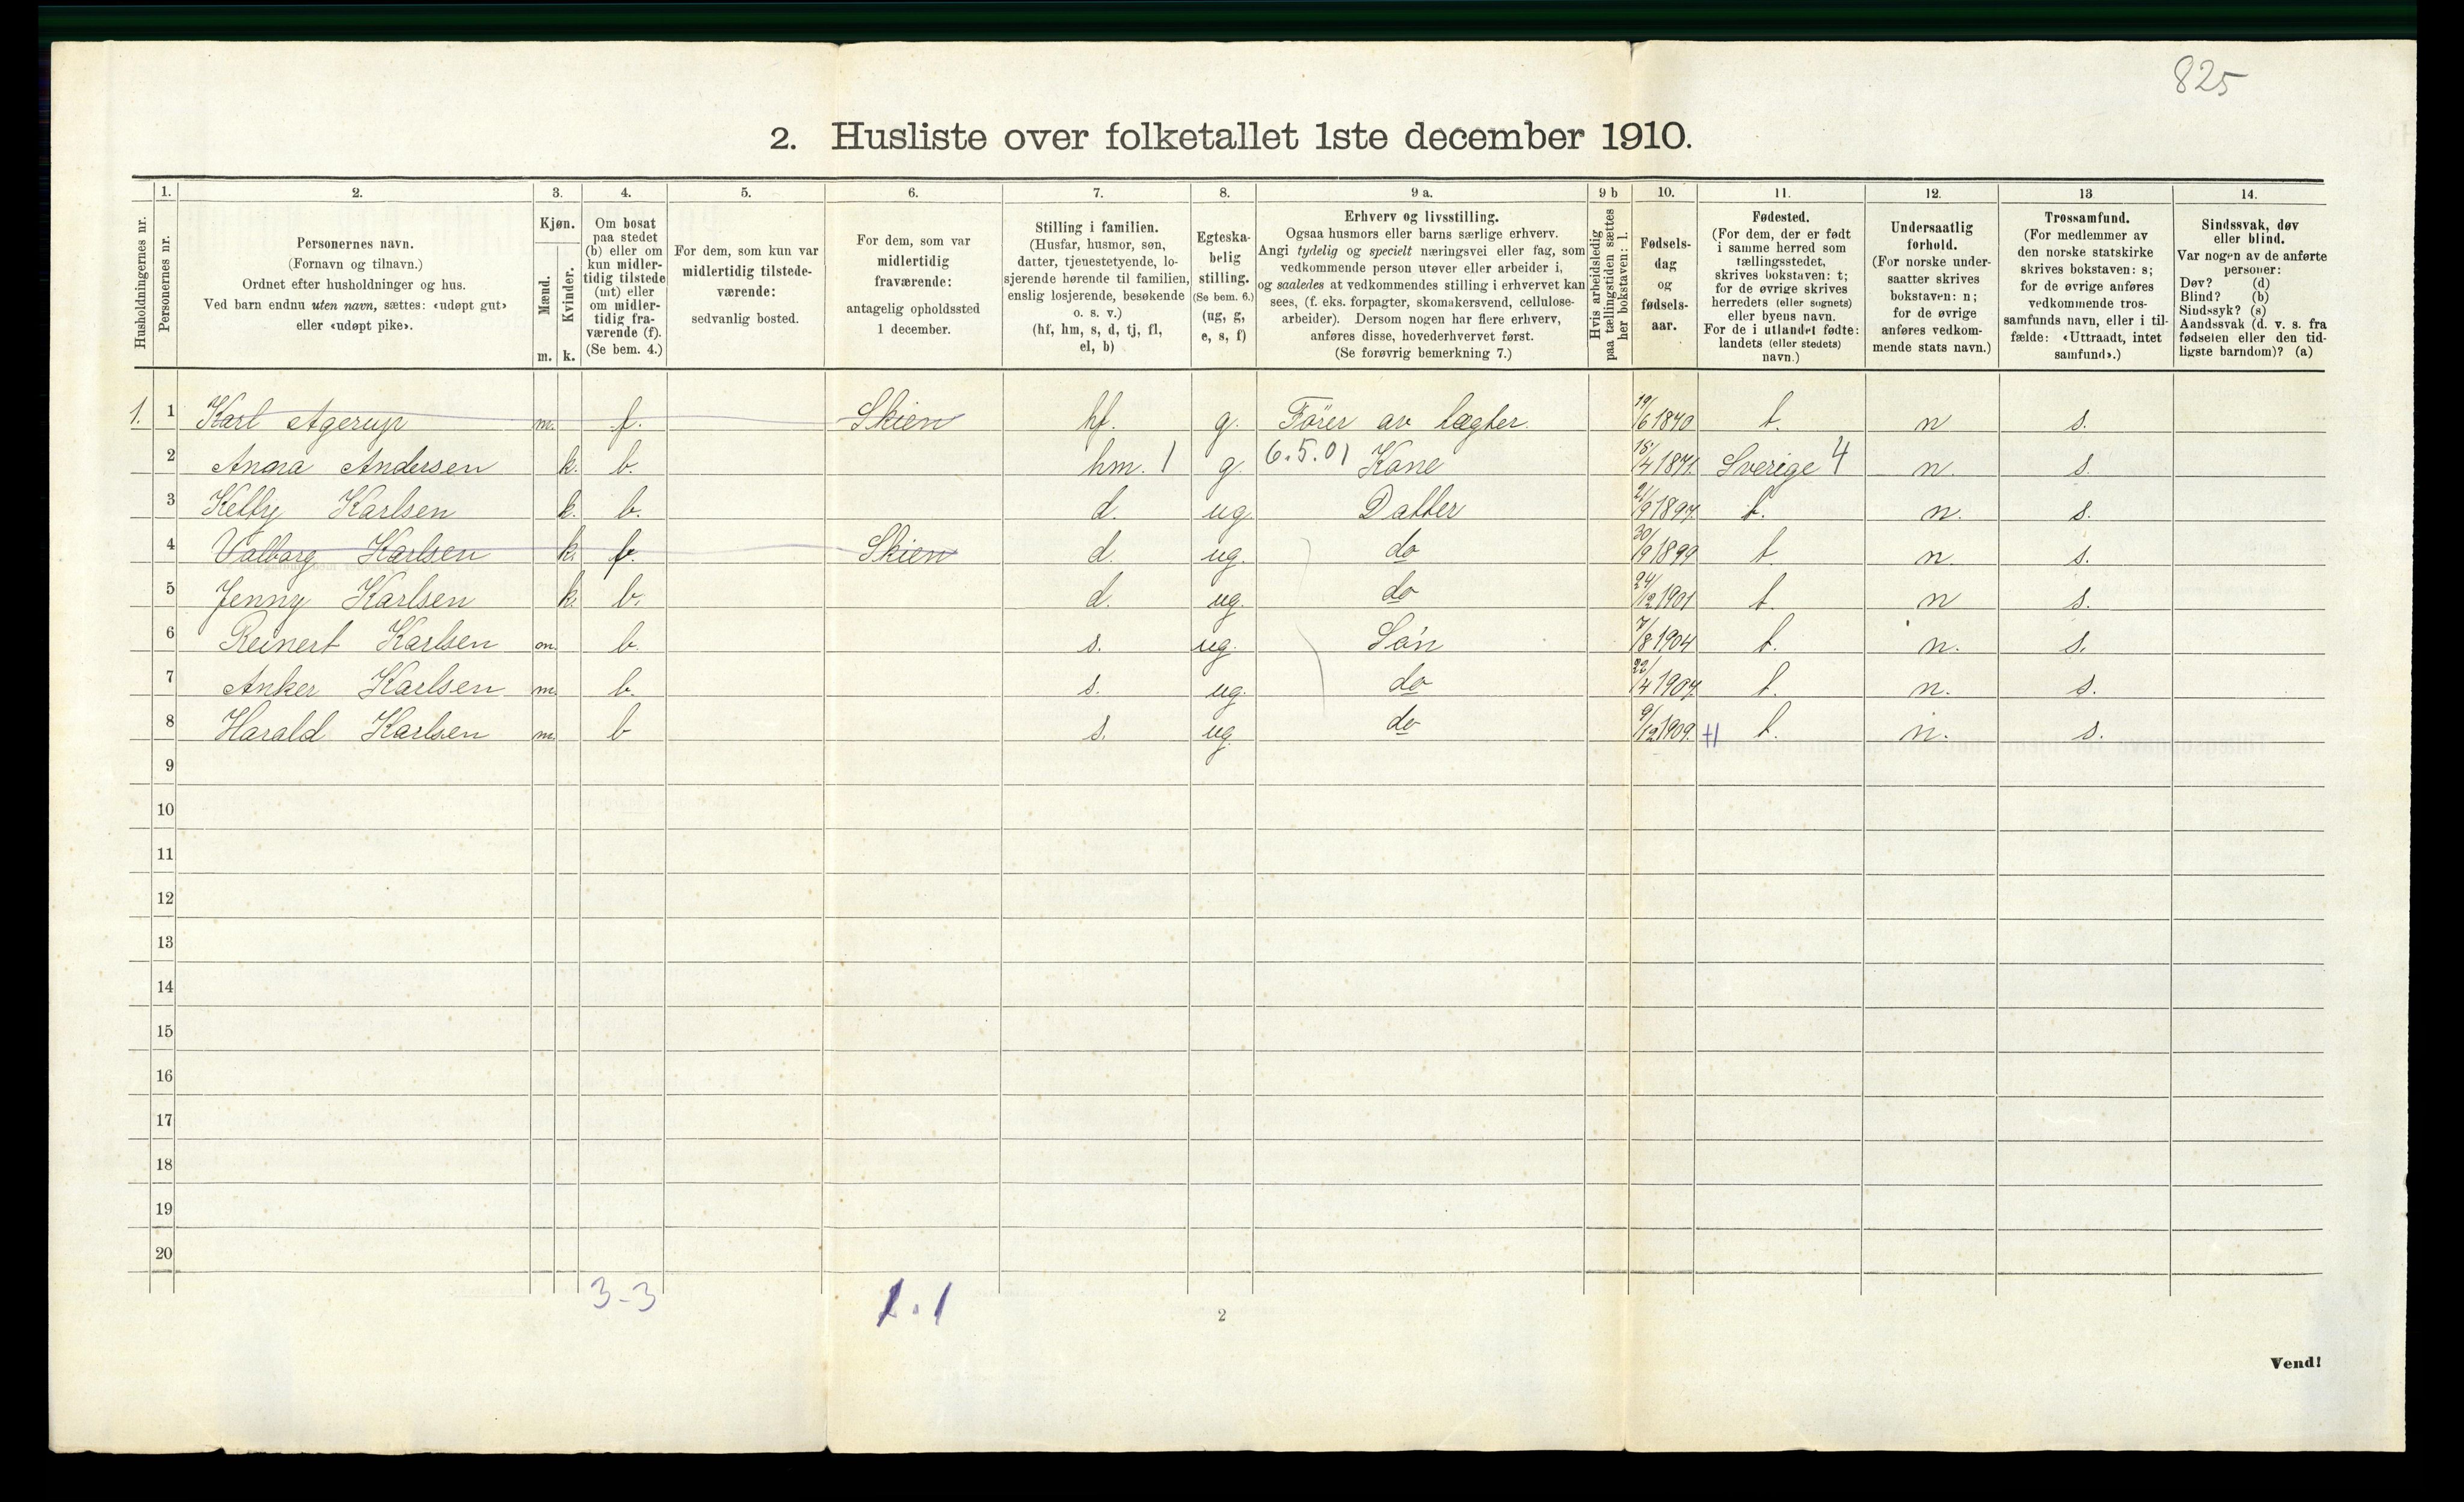 825
2. Husliste over folketallet 1ste december 1910.
1. 2. 3. 4. 5. 6. 7. 8. 9 a. 9 b 10. 11. 12. 13 14.
Husholdningernes nr.
Personernes nr.
Personernes navn.
(Fornavn og tilnavn.)
Ordnet efter husholdninger og hus.
Ved barn endnu uten navn, sættes: «udøpt gut»
eller «udøpt pike».
Kjøn.
Mænd.
Kvinder.
m. k.
Om bosat
paa stedet
(b) eller om
kun midler-
tidig tilstede
(mt) eller
om midler-
tidig fra-
værende (f).
(Se bem. 4.)
For dem, som kun var
midlertidig tilstede-
værende:
sedvanlig bosted.
For dem, som var
midlertidig
fraværende:
antagelig opholdssted
1 december.
Stilling i familien.
(Husfar, husmor, søn,
datter, tjenestetyende, lo-
sjerende hørende til familien,
enslig losjerende, besøkende
o. s. v.)
(hf, hm, s, d, tj, fl,
el, b)
Egteska-
belig
stilling.
(Se bem. 6.)
(ug, g,
e, s, f)
Erhverv og livsstilling.
Ogsaa husmors eller barns særlige erhverv.
Angi tydelig og specielt næringsvei eller fag, som
vedkommende person utøver eller arbeider i,
og saaledes at vedkommendes stilling i erhvervet kan
sees, (f. eks. forpagter, skomakersvend, cellulose-
arbeider). Dersom nogen har flere erhverv,
anføres disse, hovederhvervet først.
(Se forøvrig bemerkning 7.)
Hvis arbeidsledig
paa tællingstiden sættes
her bokstaven: l.
Fødsels-
dag
og
fødsels-
aar.
Fødested.
(For dem, der er født
i samme herred som
tællingsstedet,
skrives bokstaven: t;
for de øvrige skrives
herredets (eller sognets)
eller byens navn.
For de i utlandet fødte:
landets (eller stedets)
navn.)
Undersaatlig
forhold.
(For norske under-
saatter skrives
bokstaven: n;
for de øvrige
anføres vedkom-
mende stats navn.)
Trossamfund.
(For medlemmer av
den norske statskirke
skrives bokstaven: s;
for de øvrige anføres
vedkommende tros-
samfunds navn, eller i til-
fælde: «Uttraadt, intet
samfund».)
Sindssvak, døv
eller blind.
Var nogen av de anførte
personer:
Døv? (d)
Blind? (b)
Sindssyk? (s)
Aandssvak (d. v. s. fra
fødselen eller den tid-
ligste barndom)? (a)
1. 1 Karl Agerup m. f. Skien hf. g. Fører av lægter. 19/6 1870 t. n s.
2 Anna Andersen k. b. hm. 1 g. 6.5.01 Kone 18/4 1871. Sverige 4 n. s.
3 Ketty Karlsen k. b. d. ug. Datter 21/9 1897. t. n. s.
4 Valborg Karlsen k. f. Skien d. ug. do 30/9 1899 t. n. s.
5 Jenny Karlsen k. b. d. ug. do 24/12 1901 t. n s.
6 Reinert Karlsen m. b. s. ug. Søn 7/8 1904 t. n. s.
7 Anker Karlsen m. b. s. ug. do 22/4 1907. t. n. s.
8 Harald Karlsen m. b s. ug. do 9/12 1909. t. n. s.
9
10
11
12
13
14
15
16
17
18
19
20
3-3 1.1
2
Vend!